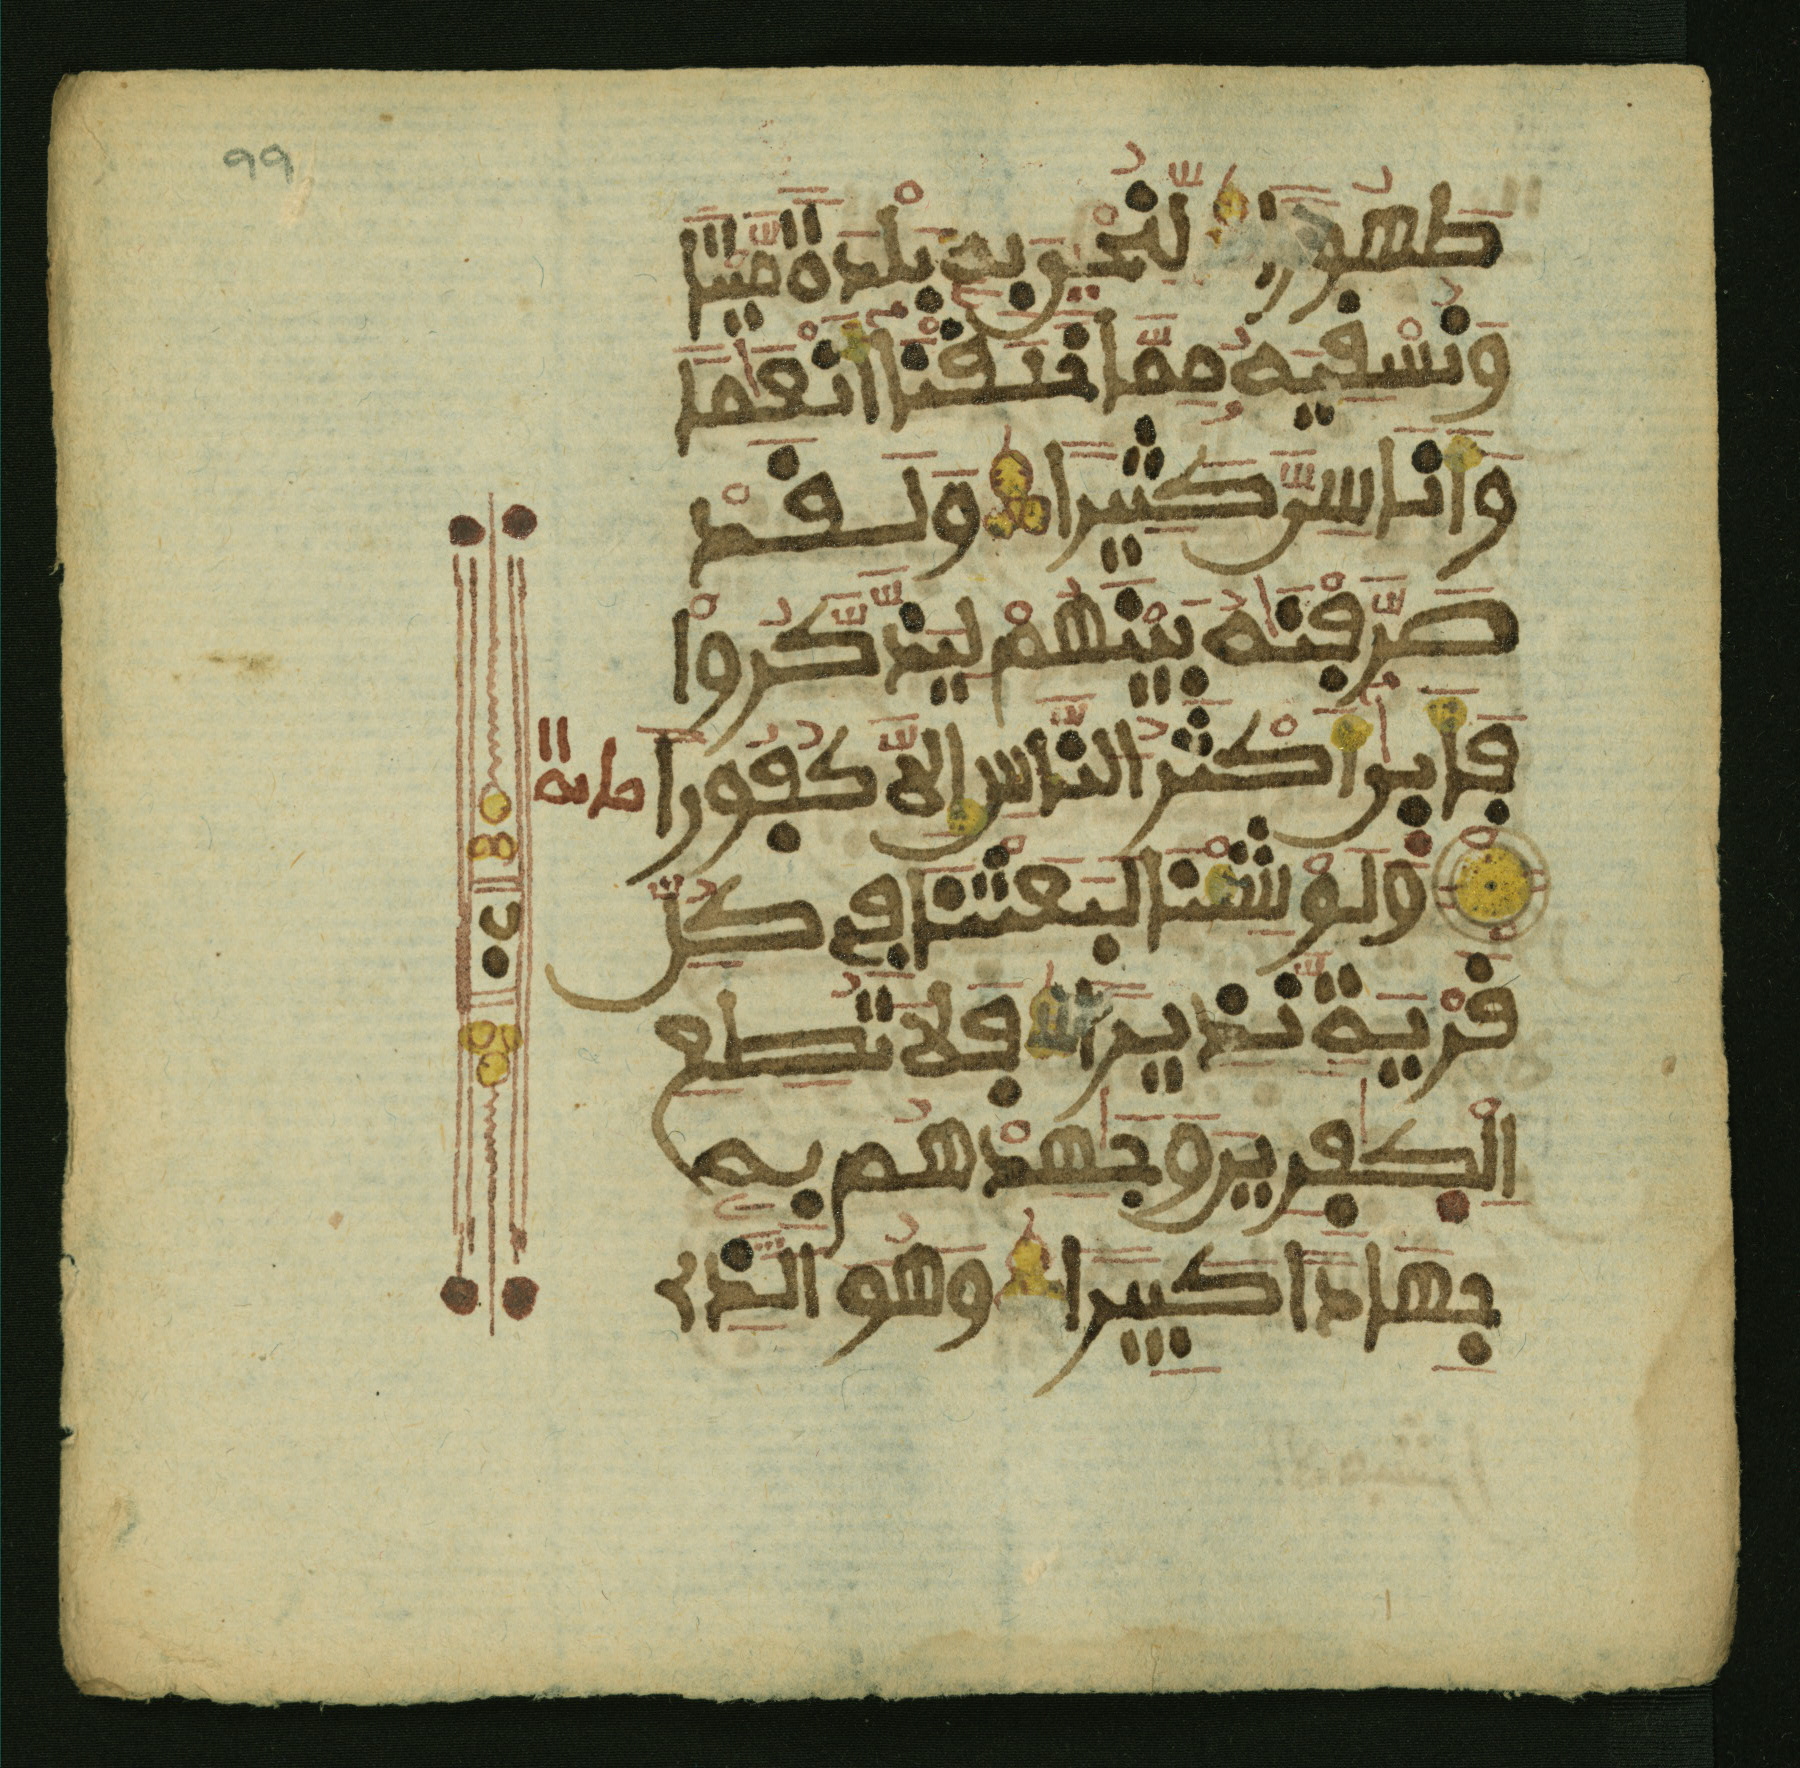 99
طهورا لنحيي به بلدة ميتا
ونسقيه مما خلقنا أنعما
وأناسي كثيرا ولقد
صرفنه بينهم ليذكروا
فأبى أكثر الناس إلا كفورا
ولو شئنا لبعثنا في كل
قرية نذيرا فلا تطع
الكفرين وجهدهم به
جهادا كبيرا وهو الذي